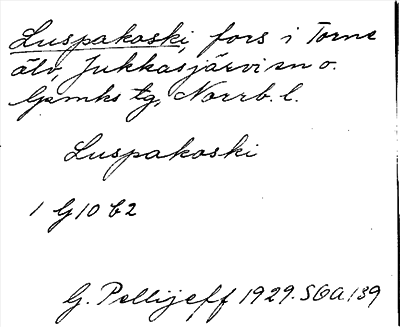 Luspakoski, fors i Torne
älv, Jukkasjärvi sn o.
Gpmks tg, Norrb. l.
Luspakoski
1 G 10 b 2
G. Pellijeff 1929. SOA 139